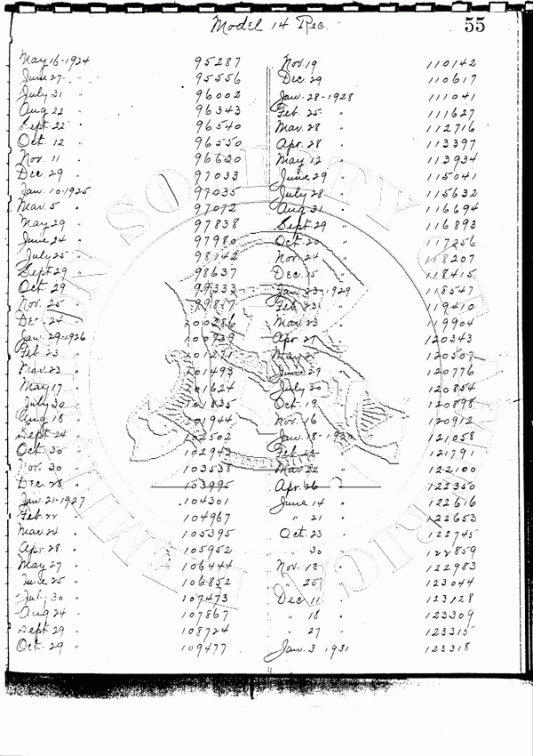 Model 14 Rec.
55
May 16-1924 95287
June 27 " 95556
July 31 " 96002
Aug 22 " 96343
Sept 22 " 96540
Oct. 12 " 96550
Nov. 11 " 96620
Dec. 29 " 97033
Jan. 10-1925 97035
Mar. 5 " 97072
May 29 " 97838
June 24 " 97980
July 25 " 98142
Sept 29 " 98637
Oct. 29 " 99333
Nov. 25 " 99817
Dec. 24 " 100286
Jan. 29-1926 100939
Feb. 23 " 101271
Mar. 23 " 101493
May 17 " 101624
July 30 " 101835
Aug 18 " 101944
Sept 24 " 102502
Oct. 30 " 102943
Nov. 30 " 103538
Dec 28 " 103995
Jan. 21-1927 104301
Feb. 22 " 104967
Mar. 24 " 105395
Apr. 28 " 105952
May 27 " 106444
June 25 " 106852
July 30 " 107473
Aug 24 " 107867
Sept 29 " 108724
Oct. 29 " 109477
Nov. 19 " 110142
Dec. 29 " 110617
Jan. 28-1928 111041
Feb. 25 " 111627
Mar. 28 " 112716
Apr. 28 " 113397
May 12 " 113934
June 29 " 115041
July 28 " 115632
Aug. 31 " 116694
Sept. 29 " 116893
Oct. 20 " 117256
Nov. 24 " 118207
Dec. 15 " 118415
Jan 23-1929 118547
Feb. 23 " 119410
Mar. 23 " 119904
Apr. 27 " 120343
May 120507
June 29 " 120776
July 20 " 120854
Oct. 19 " 120898
Nov. 16 " 120912
Jan. 18 121058
Feb. 121791
Mar. 22 " 122100
Apr. 26 " 122350
June 14 " 122616
" 21 " 122653
Oct. 23 " 122745
" 30 " 122859
Nov. 18 " 122983
" 25 " 123044
Dec. 11 " 123128
" 18 " 123309
" 27 " 123315
Jan. 3 1931 123318